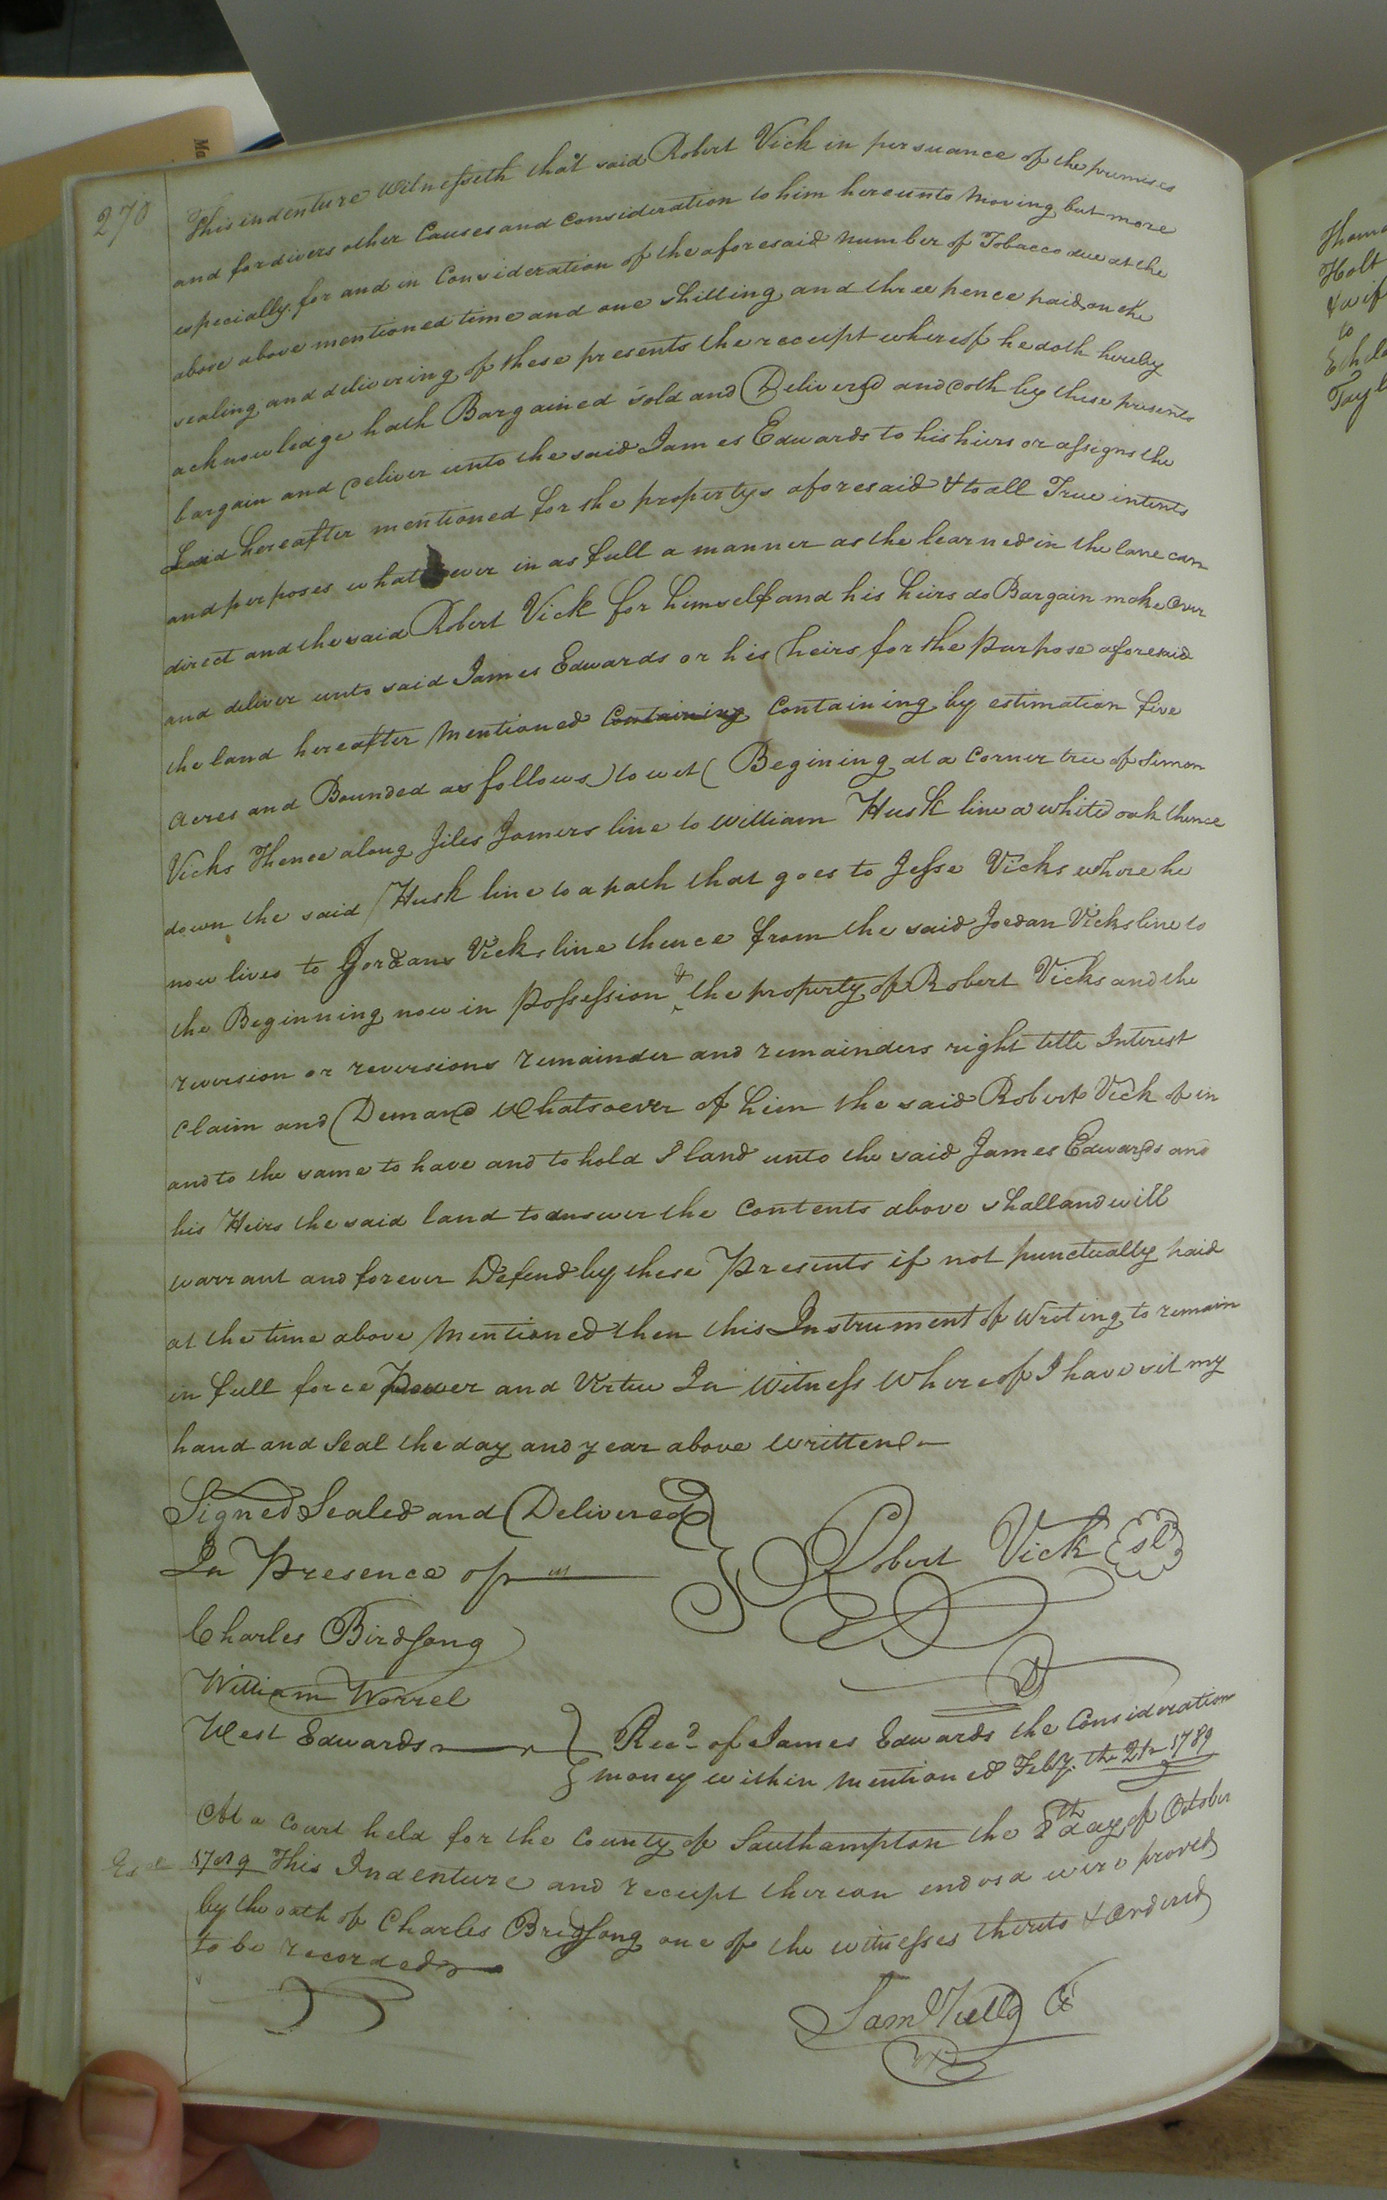 270
This indenture Witnesseth that said Robert Vick in persuance of the premises
and for divers other Causes and Consideration to him hereunto moving but more
especially for and in Consideration of the aforesaid Number of Tobacco due at the
above above mentioned time and one shilling and three pence paid on the
sealing and delivering of these presents the receipt whereof he doth hereby
acknowledge hath Bargained sold and Delivered and doth by these presents
bargain and deliver unto the said James Edwards to his hiers or assigns the
Land hereafter mentioned for the propertys aforesaid & to all True intents
and perposes whatsoever in as full a manner as the learned in the lawe can
direct and the said Robert Vick for himself and his heirs do Bargain make over
and deliver unto said James Edwards or his heirs for the purpose aforesaid
the land hereafter mentioned Containing Containing by estimation five
acres and Bounded as follows) to wit ( Begining at a Corner tree of Simon
Vicks Thence along Jiles Joiners line to William Husk line a white oak thence
down the said Husk line to a path that goes to Jesse Vicks where he
now lives to Jordans Vicks line thence from the said Jordan Vicks line to
the Beginning now in Possession & the property of Robert Vicks and the
reversion or reversions remainder and remainders right title Interest
Claim and Demand Whatsoever of him the said Robert Vick of in
and to the same to have and to hold S land unto the said James Edwards and
his Heirs the said land to answer the Contents above shall and will
warrant and forever Defend by these Presents if not punctually paid
at the time above Mentioned then this Instrument of Writing to remain
in full force Power and Virtue In Witness Whereof I have sit my
hand and Seal the day and year above written
Signed Sealed and Delivered
In Presence of us
Robert Vick sl
Charles Birdsong
William Worrel
West Edwards
Recd of James Edwards the Consideration
money within mentioned Feby. the 21 1789
At a Court held for the County of Southampton the 8th day of October
1789 This Indenture and receipt thereon endosd were proved
by the oath of Charles Bridsong one of the witnesses thereto & Ordered
to be recorded
Sam Kello Ck
Thoma
Holt
& wif
to
Tayl